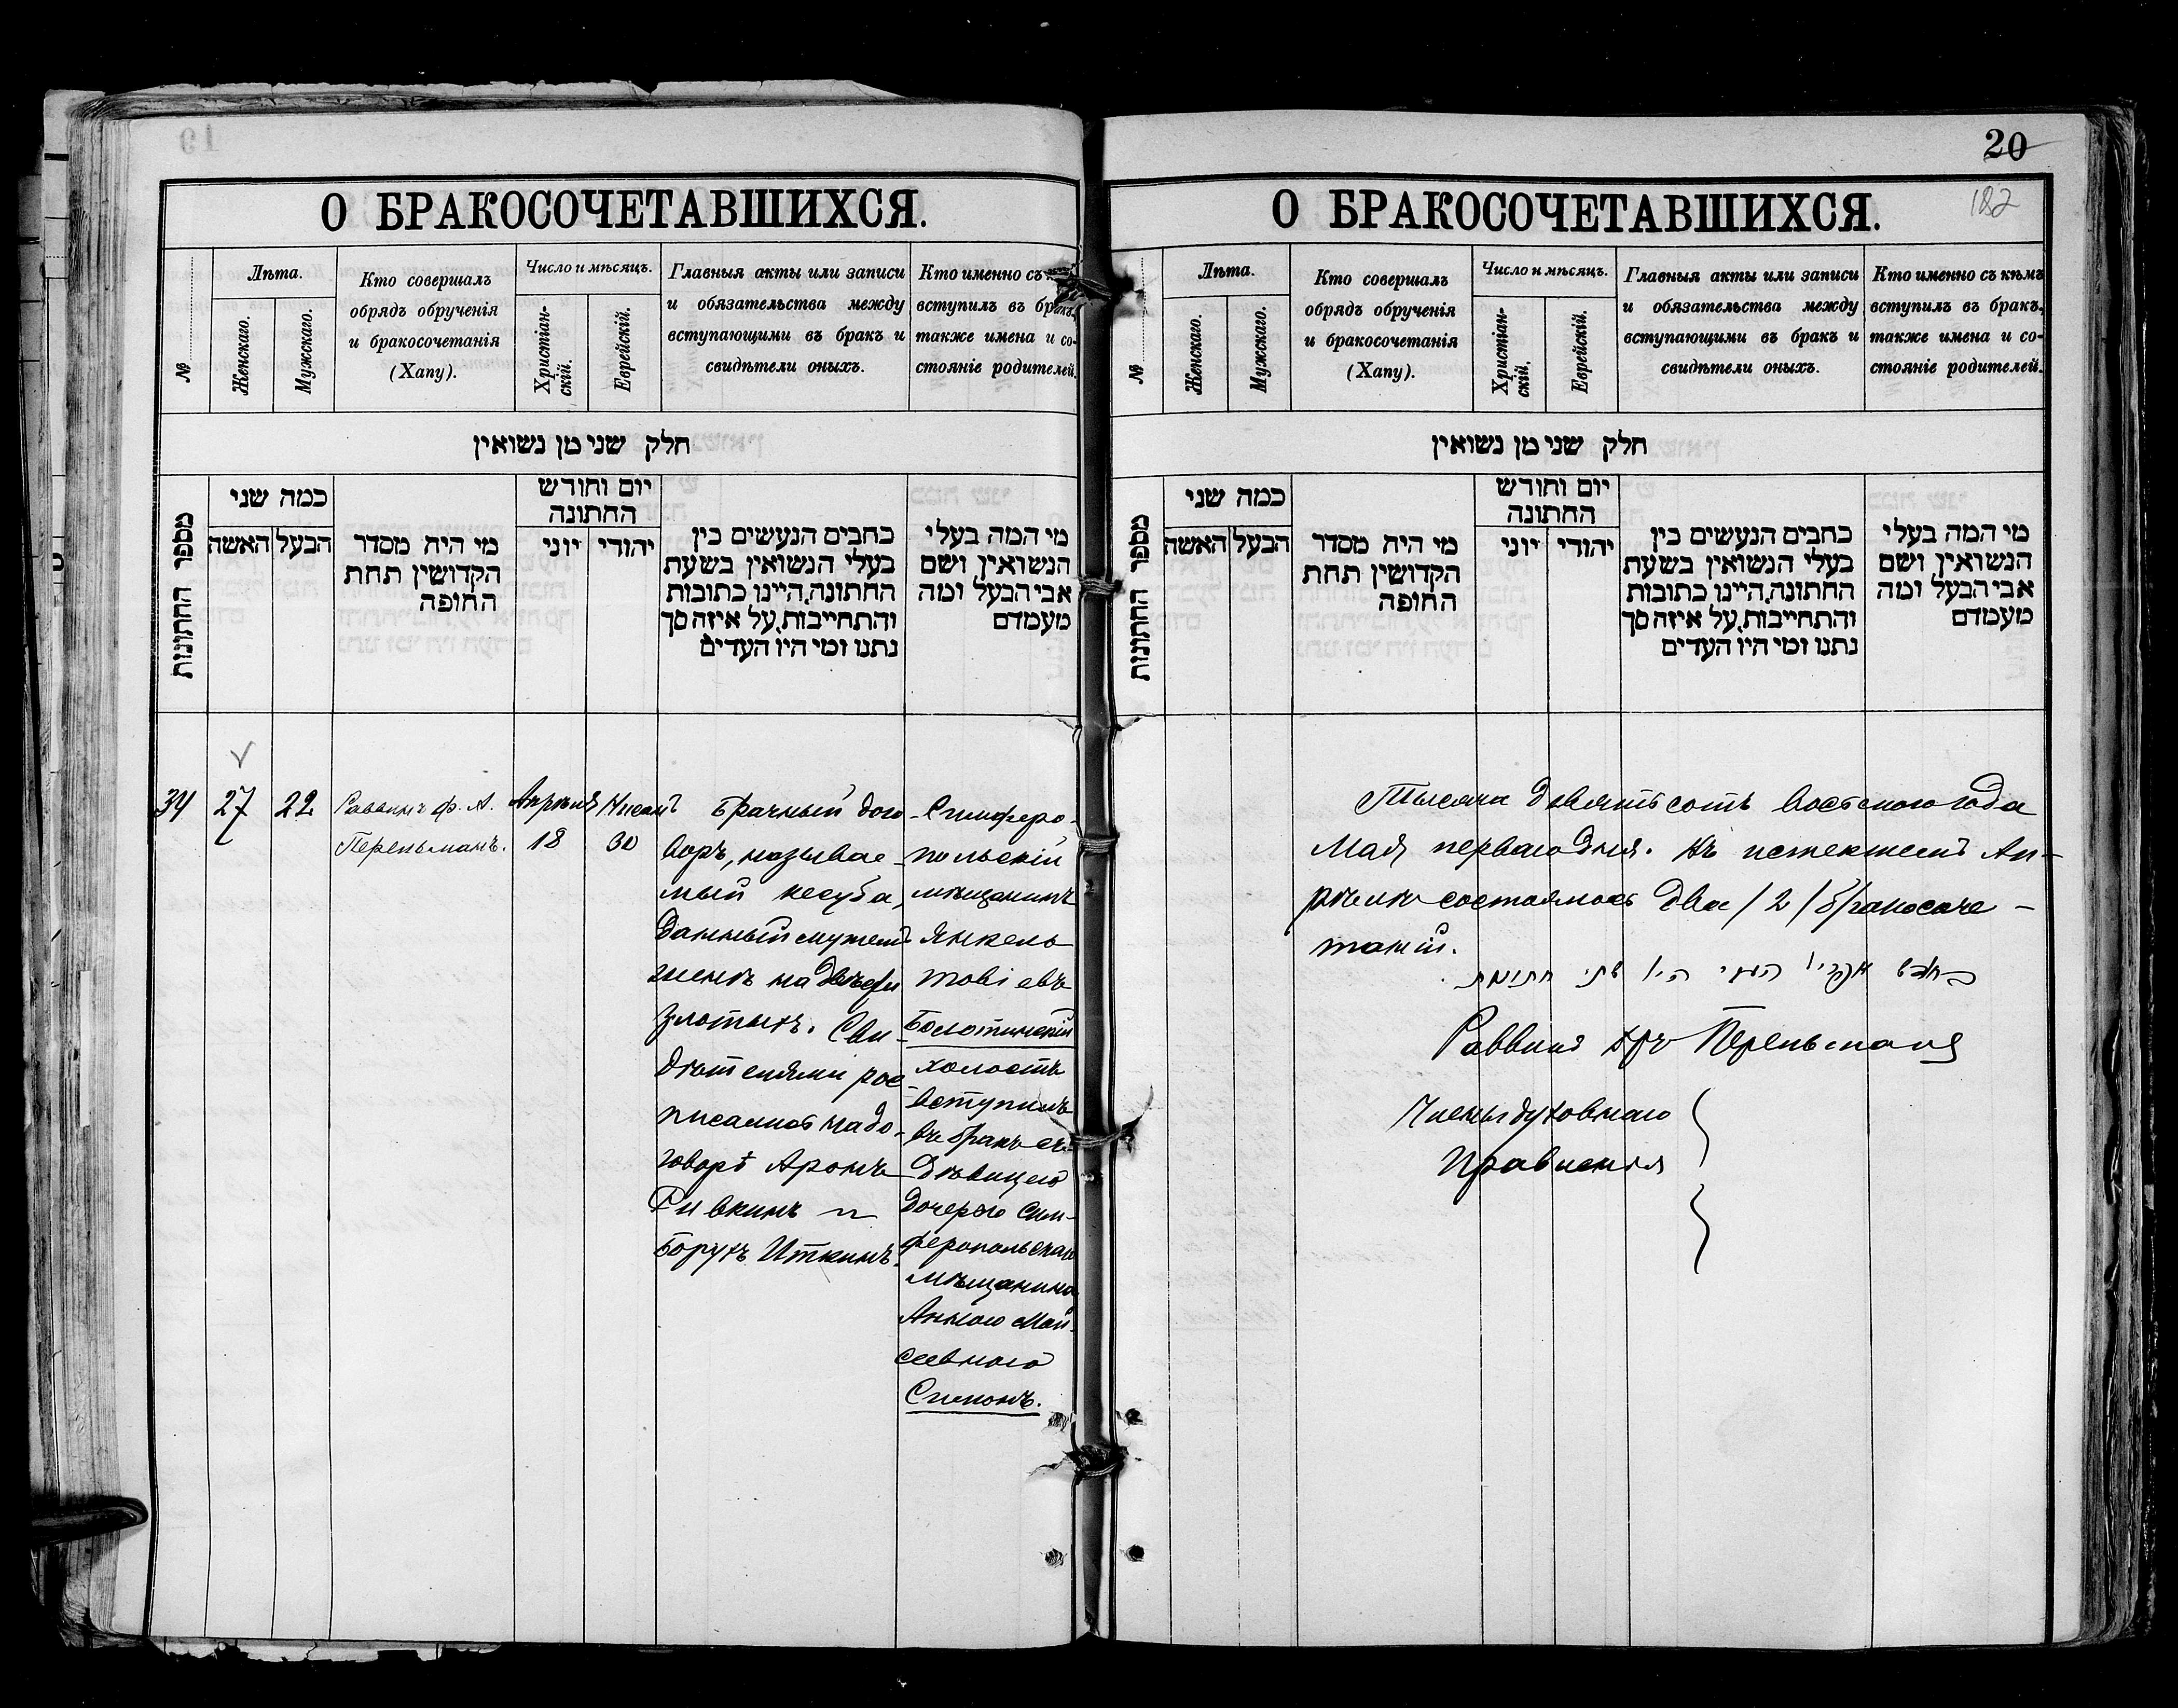 20
182
О БРАКОСОЧЕТАВШИХСЯ.
№
Лѣта.
Женскаго.
Мужскаго.
Кто совершалъ
обрядъ обрученія
и бракосочетанія
(Хапу).
Число и мѣсяцъ.
Христіан-
скій.
Еврейскій.
Главныя акты или записи
и обязательства между
вступающими въ бракъ и
свидѣтели оныхъ.
Кто именно съ
вступилъ въ бракъ,
также имена и со-
стояніе родителей.
חלק שני מן נשואין
מספר החתונות
כמה שני
האשה
הבעל
מי היה מסדר
הקדושין תחת
החופה
יום וחודש
החתונה
יוני
יהודי
כתבים הנעשים בין
בעלי הנשואין בשעת
החתונה, היינו כתובות
והתחייבות, על איזה סך
נתנו ומי היו העדים
מי המה בעלי
הנשואין ושם
אבי הבעל ומה
מעמדם
34
27
22
Раввинъ Ф. А.
Перельманъ.
Апрѣля
18
Нисанъ
30
Брачный дого-
воръ, называе-
мый кесуба,
данный мужемъ
женѣ на двѣсти
злотыхъ. Сви-
дѣтелями рос-
писались на до-
говорѣ Аронъ
Рывкинъ и
Борухъ Иткинъ.
Симферо-
польскій
мѣщанинъ
Янкель
Товіевъ
Болотинскій
холостъ
вступилъ
въ бракъ съ
дѣвицею
дочерью Сим-
феропольскаго
мѣщанина
Анною Мои-
сеевною
Симонъ.
О БРАКОСОЧЕТАВШИХСЯ.
№
Лѣта.
Женскаго.
Мужскаго.
Кто совершалъ
обрядъ обрученія
и бракосочетанія
(Хапу).
Число и мѣсяцъ.
Христіан-
скій.
Еврейскій.
Главныя акты или записи
и обязательства между
вступающими въ бракъ и
свидѣтели оныхъ.
Кто именно съ кѣмъ
вступилъ въ бракъ,
также имена и со-
стояніе родителей.
חלק שני מן נשואין
מספר החתונות
כמה שני
האשה
הבעל
מי היה מסדר
הקדושין תחת
החופה
יום וחודש
החתונה
יוני
יהודי
כתבים הנעשים בין
בעלי הנשואין בשעת
החתונה, היינו כתובות
והתחייבות, על איזה סך
נתנו ומי היו העדים
מי המה בעלי
הנשואין ושם
אבי הבעל ומה
מעמדם
Тысяча девятьсотъ восьмого года
Мая перваго дня. Въ истекшемъ Ап-
рѣлѣ состоялось два /2/ бракосоче-
таній.
היו שתי חתונות
Раввинъ Перельманъ
Члены духовнаго
Правленія